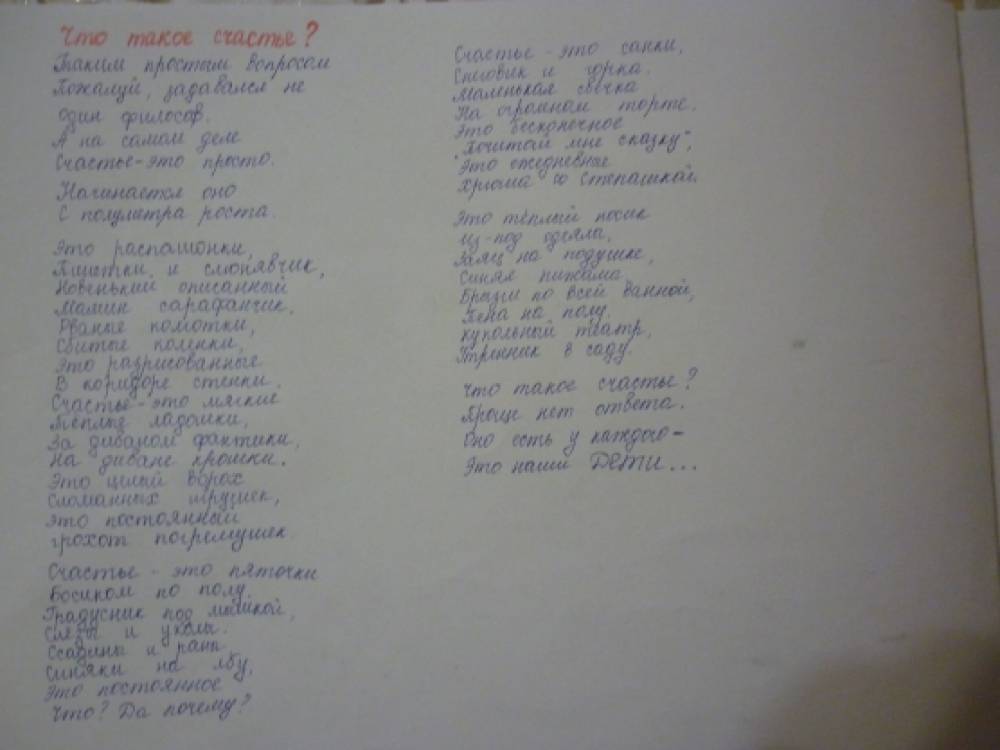 Что такое счастье?
Таким простым вопросом
Пожалуй, задавался не
один философ.
А на самом деле
Счастье-это просто.
Начинается оно
С полуметра роста.
Это распашонки,
Пинетки и слюнявчик,
Новенький описанный
Мамин сарафанчик.
Рваные колготки,
Сбитые коленки,
Это разрисованные
В коридоре стенки.
Счастье-это мягкие
Тёплые ладошки,
За диваном фантики,
На диване крошки.
Это целый ворох
Сломанных игрушек,
Это постоянный
грохот погремушек.
Счастье - это пяточки
Босиком по полу.
Градусник под мышкой,
Слёзы и уколы.
Ссадины и раны,
Синяки на лбу,
Это постоянное
Что? Да почему?
Счастье - это санки,
Снеговик и горка.
Маленькая свечка
На огромном торте.
Это бесконечное
"Почитай мне сказку",
Это ежедневные
Хрюша со Степашкой.
Это тёплый носик
Из-под одеяла,
Заяц на подушке,
Синяя пижама.
Брызги по всей ванной,
Пена на полу.
Кукольный театр,
Утренник в саду.
Что такое счастье?
Проще нет ответа.
Оно есть у каждого-
Это наши ДЕТИ...